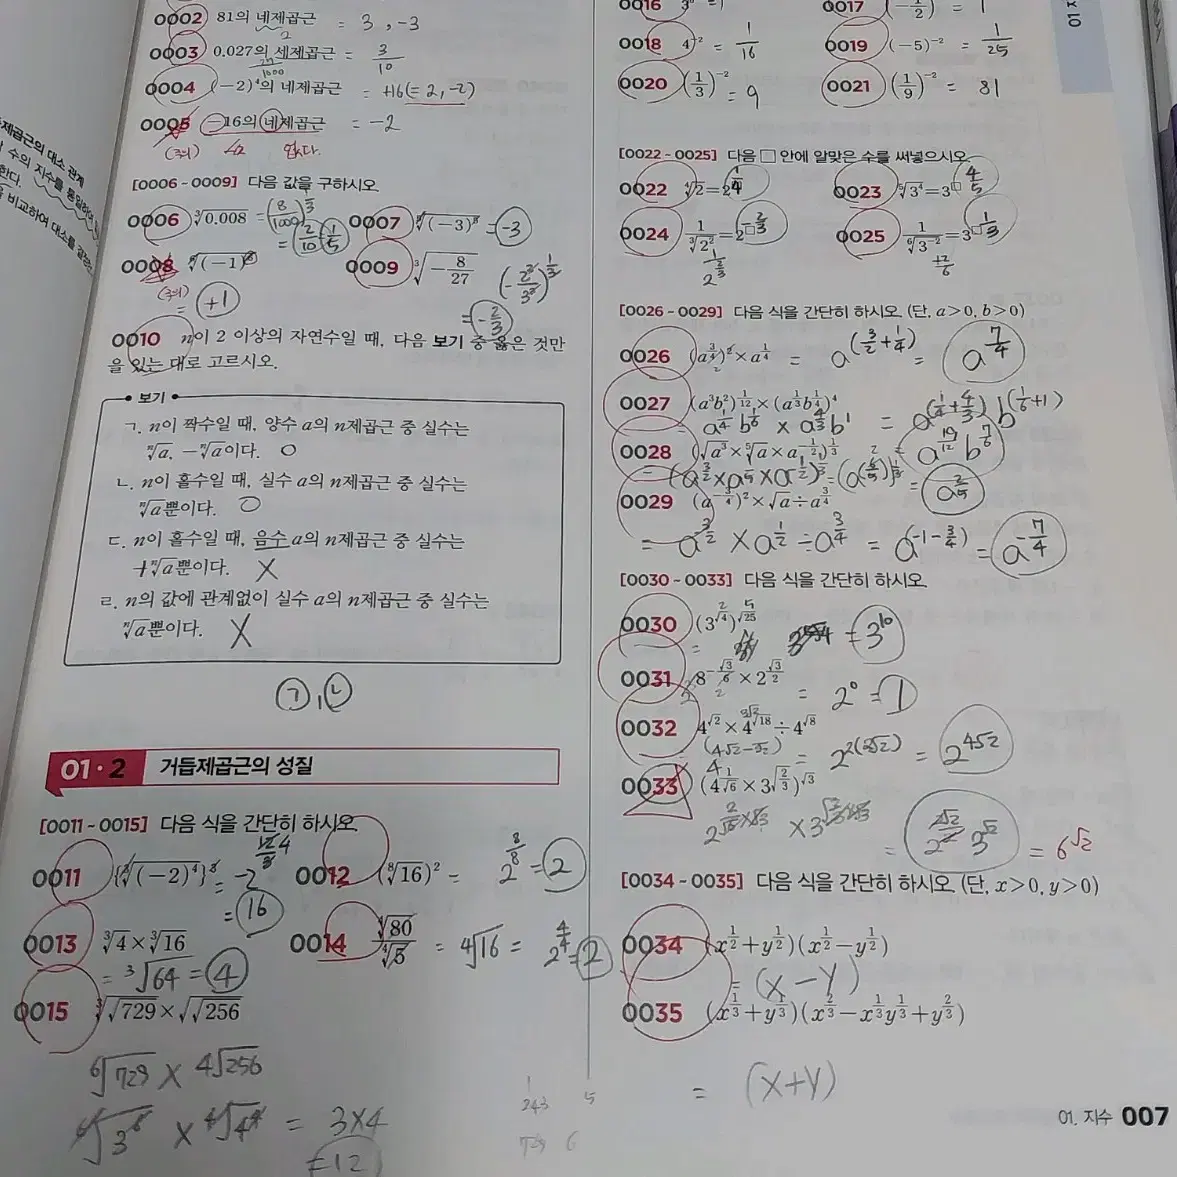 제곱근의 대소 관계
수의 지수를 통일하여
한다.
비교하여 대소를 결정
0002 81의 네제곱근 = 3, -3
0003 0.027의 세제곱근 = 3/10
27/1000
0004 (-2)⁴의 네제곱근 = +16(= 2, -2)
0005 -16의 네제곱근 = -2
(주의) 없다.
[0006 - 0009] 다음 값을 구하시오.
0006 ³√0.008 = (8/1000)^(1/3)
= 2/10 = 1/5
0007 (-3) = -3
0008 (-1)
(주의) = +1
0009 ³√(-8/27) (-2³/3³)^(1/3)
= -2/3
0010 n이 2 이상의 자연수일 때, 다음 보기 중 옳은 것만
을 있는 대로 고르시오.
보기
ㄱ. n이 짝수일 때, 양수 a의 n제곱근 중 실수는
ⁿ√a, -ⁿ√a이다. O
ㄴ. n이 홀수일 때, 실수 a의 n제곱근 중 실수는
ⁿ√a뿐이다. O
ㄷ. n이 홀수일 때, 음수 a의 n제곱근 중 실수는
+ⁿ√a뿐이다. X
ㄹ. n의 값에 관계없이 실수 a의 n제곱근 중 실수는
ⁿ√a뿐이다. X
ㄱ, ㄴ
01·2 거듭제곱근의 성질
[0011 - 0015] 다음 식을 간단히 하시오.
0011 (-2)⁴
= 16
0012 (⁸√16)² = 2^(8/8) = 2
0013 ³√4×³√16
= ³√64 = 4
0014 ⁴√80/⁴√5 = ⁴√16 = 2^(4/4) = 2
0015 ³√√729×√√256
⁶√729 X ⁴√256
⁶√3⁶ X ⁴√4⁴ = 3X4
= 12
243 5
729 6
0016 3⁰ = 1
0017 (-1/2) = 1
0018 4⁻² = 1/16
0019 (-5)⁻² = 1/25
0020 (1/3)⁻² = 9
0021 (1/9)⁻² = 81
[0022 - 0025] 다음 □ 안에 알맞은 수를 써넣으시오.
0022 ⁴√2=2^□ 1/4
0023 ⁵√3⁴=3^□ 4/5
0024 1/³√2²=2^□ -2/3
1/2^(2/3)
0025 1/⁶√3⁻²=3^□ 1/3
+2/6
[0026 - 0029] 다음 식을 간단히 하시오. (단, a>0, b>0)
0026 (a^(3/4))²×a^(1/4) = a^(3/2+1/4) = a^(7/4)
0027 (a³b²)^(1/12)×(a^(1/3)b^(1/4))⁴
a^(1/4) b^(1/6) X a^(4/3) b¹ = a^(1/4+4/3) b^(1/6+1)
= a^(19/12) b^(7/6)
0028 (√a³×⁵√a×a^(-1/2))^(1/3)
= a^(2/5)
0029 (a^(-3/4))²×√a÷a^(3/4)
= a^(-3/2) X a^(1/2) ÷ a^(3/4) = a^(-1-3/4) = a^(-7/4)
[0030 - 0033] 다음 식을 간단히 하시오.
0030 (3^√4)^√25
= 3¹⁰
0031 8^(-√3/6)×2^(√3/2) = 2⁰ = 1
0032 4^√2×4^√18÷4^√8
= 2^(4√2)
0033 (4^(1/√6)×3^√(2/3))^√3
3^√2 = 6^√2
[0034 - 0035] 다음 식을 간단히 하시오. (단, x>0, y>0)
0034 (x^(1/2)+y^(1/2))(x^(1/2)-y^(1/2))
= (x-y)
0035 (x^(1/3)+y^(1/3))(x^(2/3)-x^(1/3)y^(1/3)+y^(2/3))
= (x+y)
01. 지수 007